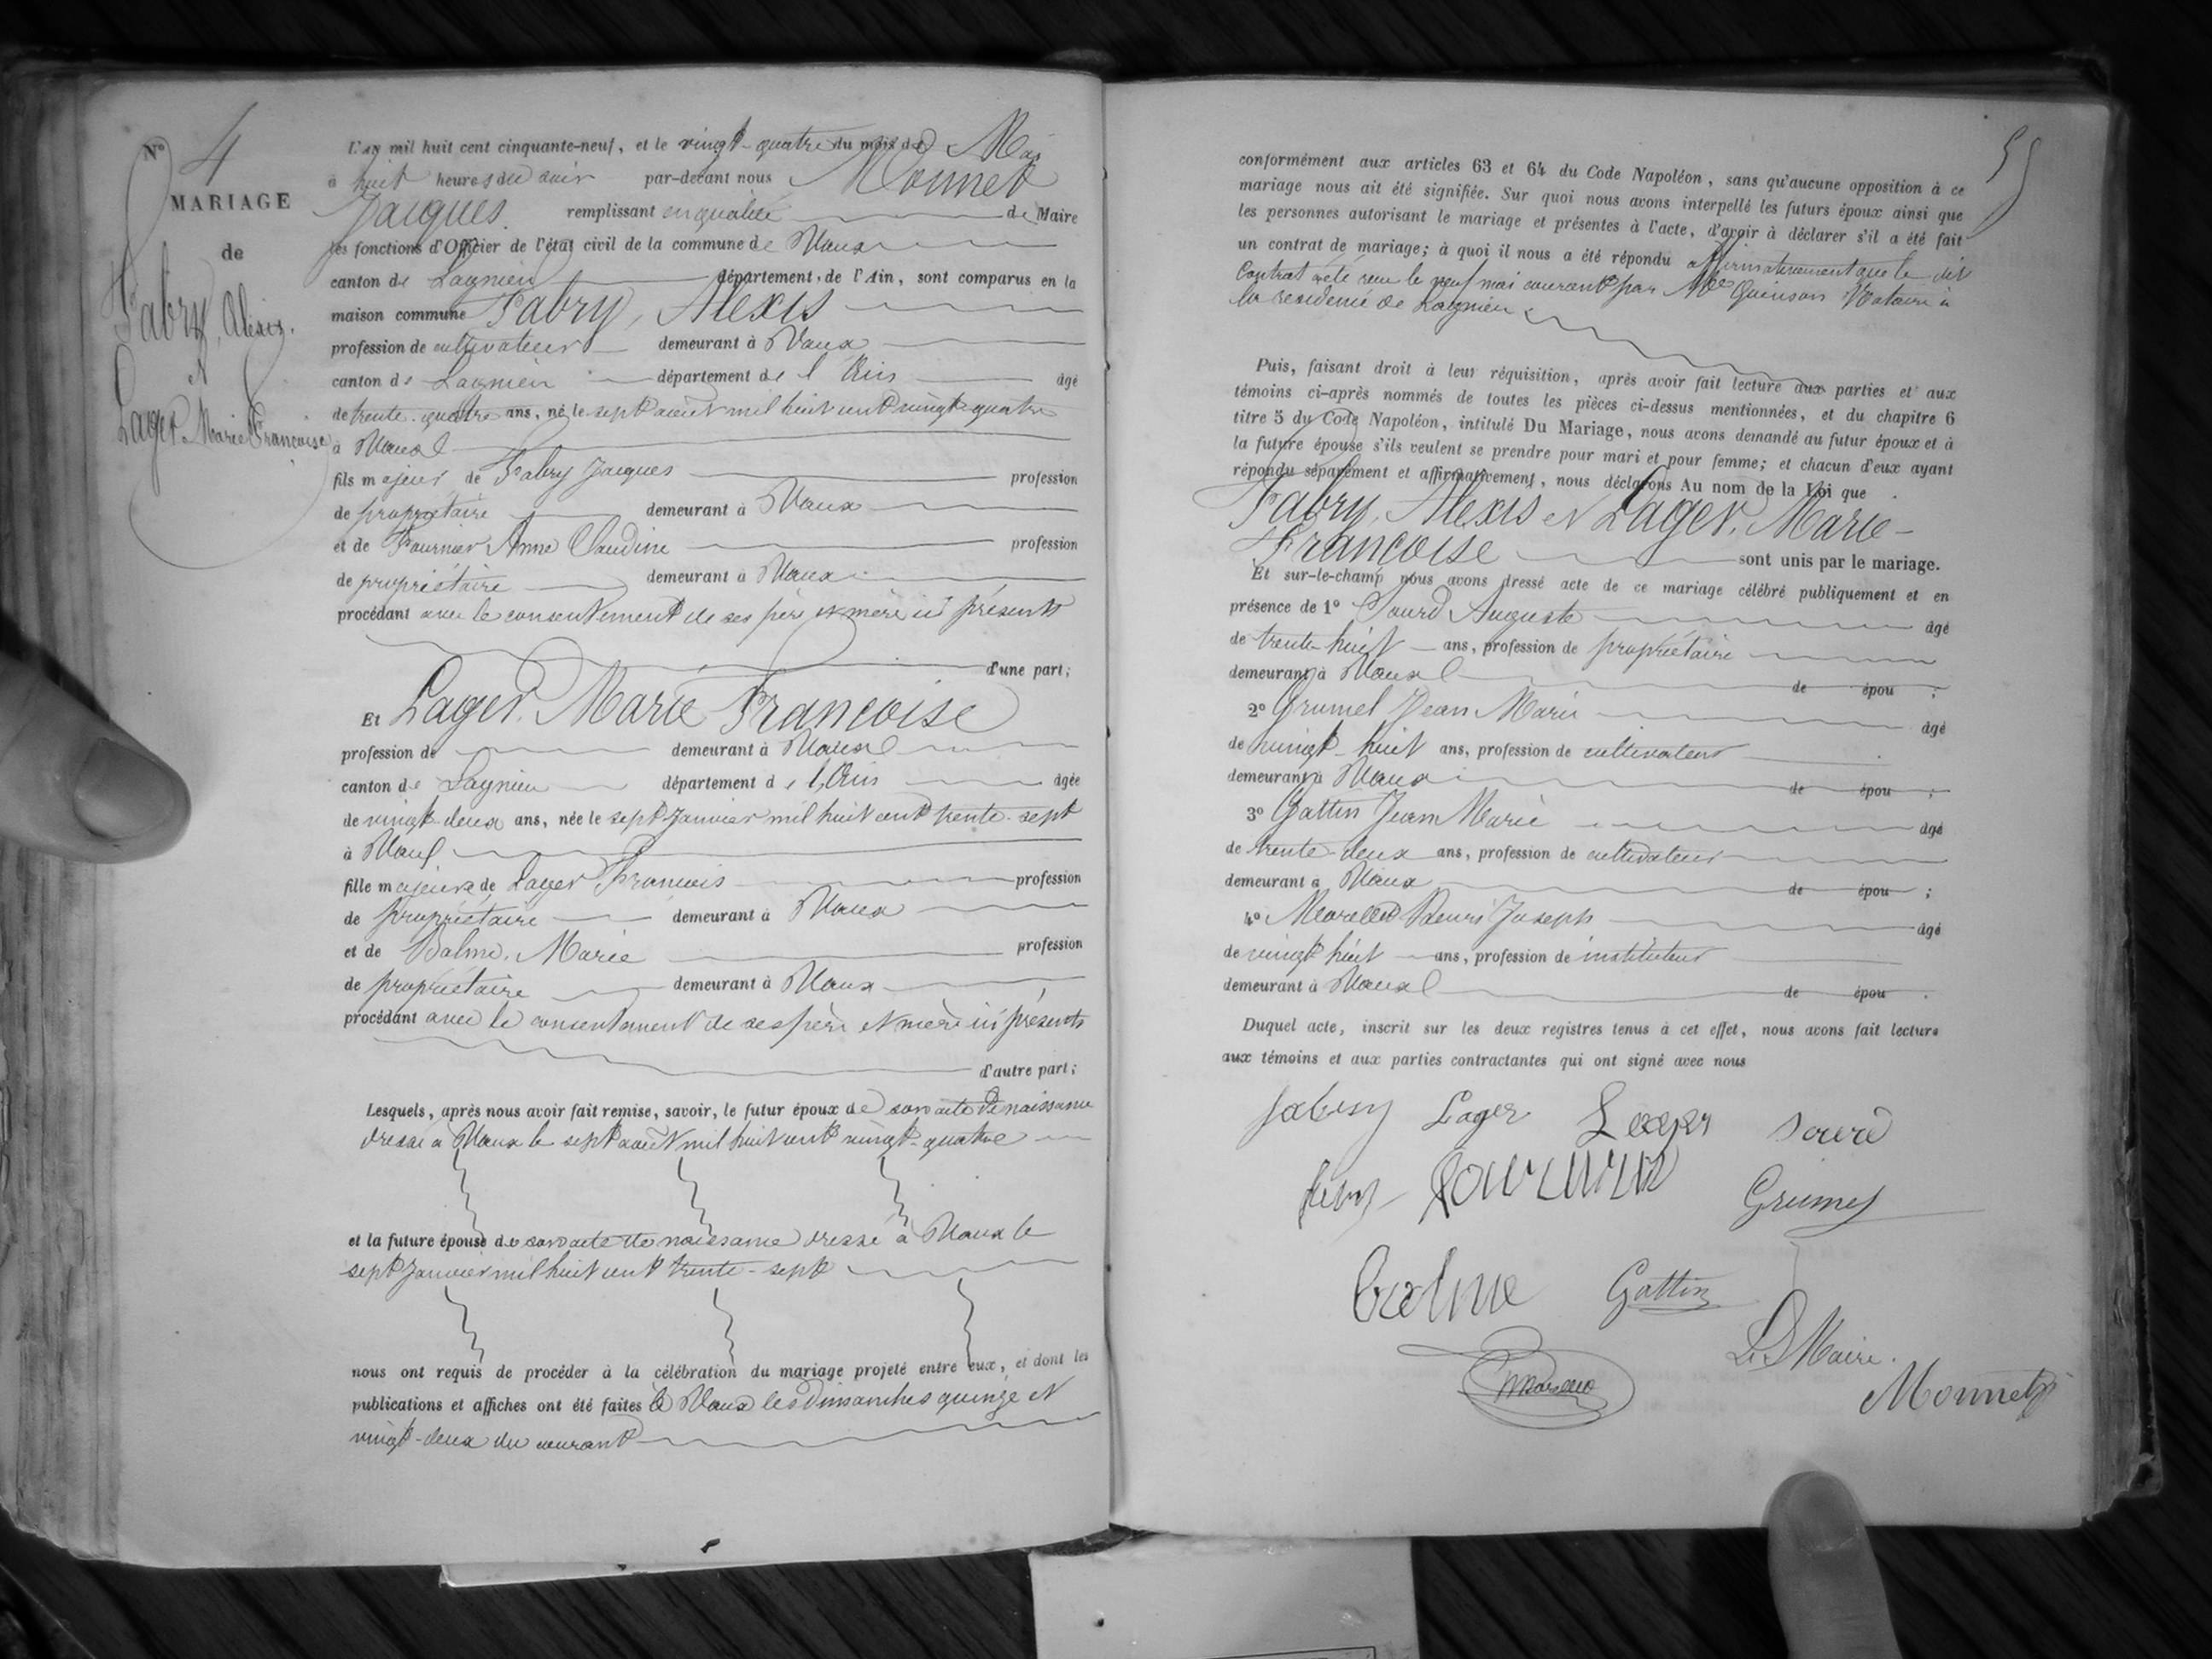 Nº 4
MARIAGE
de
Fabry, Alexis.
et
Lager Marie Françoise
L'an mil huit cent cinquante-neuf, et le vingt-quatre du mois de Mai
à huit heures du soir par-devant nous Monnet
Jacques. remplissant en qualité de Maire
les fonctions d'Officier de l'état civil de la commune de Vaux
canton de Lagnieu département de l'Ain, sont comparus en la
maison commune Fabry, Alexis
profession de cultivateur demeurant à Vaux
canton de Lagnieu département de l'Ain âgé
de trente-quatre ans, né le sept août mil huit cent vingt-quatre
à Vaux
fils majeur de Fabry Jacques profession
de propriétaire demeurant à Vaux
et de Fournier Anne Claudine profession
de propriétaire demeurant à Vaux
procédant avec le consentement de ses père et mère ici présents
d'une part;
Et Lager. Marie Françoise
profession de demeurant à Vaux
canton de Lagnieu département de l'Ain âgée
de vingt-deux ans, née le sept Janvier mil huit cent trente-sept
à Vaux
fille majeure de Lager François profession
de propriétaire demeurant à Vaux
et de Balme. Marie profession
de propriétaire demeurant à Vaux
procédant avec le consentement de ses père et mère ici présents
d'autre part;
Lesquels, après nous avoir fait remise, savoir, le futur époux de son acte de naissance
dressé à Vaux le sept août mil huit cent vingt-quatre
et la future épouse de son acte de naissance dressé à Vaux le
sept Janvier mil huit cent trente-sept
nous ont requis de procéder à la célébration du mariage projeté entre eux, et dont les
publications et affiches ont été faites à Vaux les Dimanches quinze et
vingt-deux du courant
55
conformément aux articles 63 et 64 du Code Napoléon, sans qu'aucune opposition à ce
mariage nous ait été signifiée. Sur quoi nous avons interpellé les futurs époux ainsi que
les personnes autorisant le mariage et présentes à l'acte, d'avoir à déclarer s'il a été fait
un contrat de mariage; à quoi il nous a été répondu affirmativement que le dit
Contrat a été reçu le neuf mai courant par Me Quinson Notaire à
la residence de Lagnieu
Puis, faisant droit à leur réquisition, après avoir fait lecture aux parties et aux
témoins ci-après nommés de toutes les pièces ci-dessus mentionnées, et du chapitre 6
titre 5 du Code Napoléon, intitulé Du Mariage, nous avons demandé au futur époux et à
la future épouse s'ils veulent se prendre pour mari et pour femme; et chacun d'eux ayant
répondu séparément et affirmativement, nous déclarons Au nom de la Loi que
Fabry, Alexis et Lager. Marie-
Françoise sont unis par le mariage.
Et sur-le-champ nous avons dressé acte de ce mariage célébré publiquement et en
présence de 1º Sourd Auguste âgé
de trente-huit ans, profession de propriétaire
demeurant à Vaux de épou ;
2º Grumel Jean Marie âgé
de vingt-huit ans, profession de cultivateur
demeurant à Vaux de épou ;
3º Gattin Jean Marie âgé
de trente-deux ans, profession de cultivateur
demeurant à Vaux de épou ;
4º Henri Joseph âgé
de vingt huit ans, profession de instituteur
demeurant à Vaux de épou .
Duquel acte, inscrit sur les deux registres tenus à cet effet, nous avons fait lecture
aux témoins et aux parties contractantes qui ont signé avec nous
fabry Lager Lager Sourd
fournier Grumel
balme Gattin
Le Maire.
Monnet